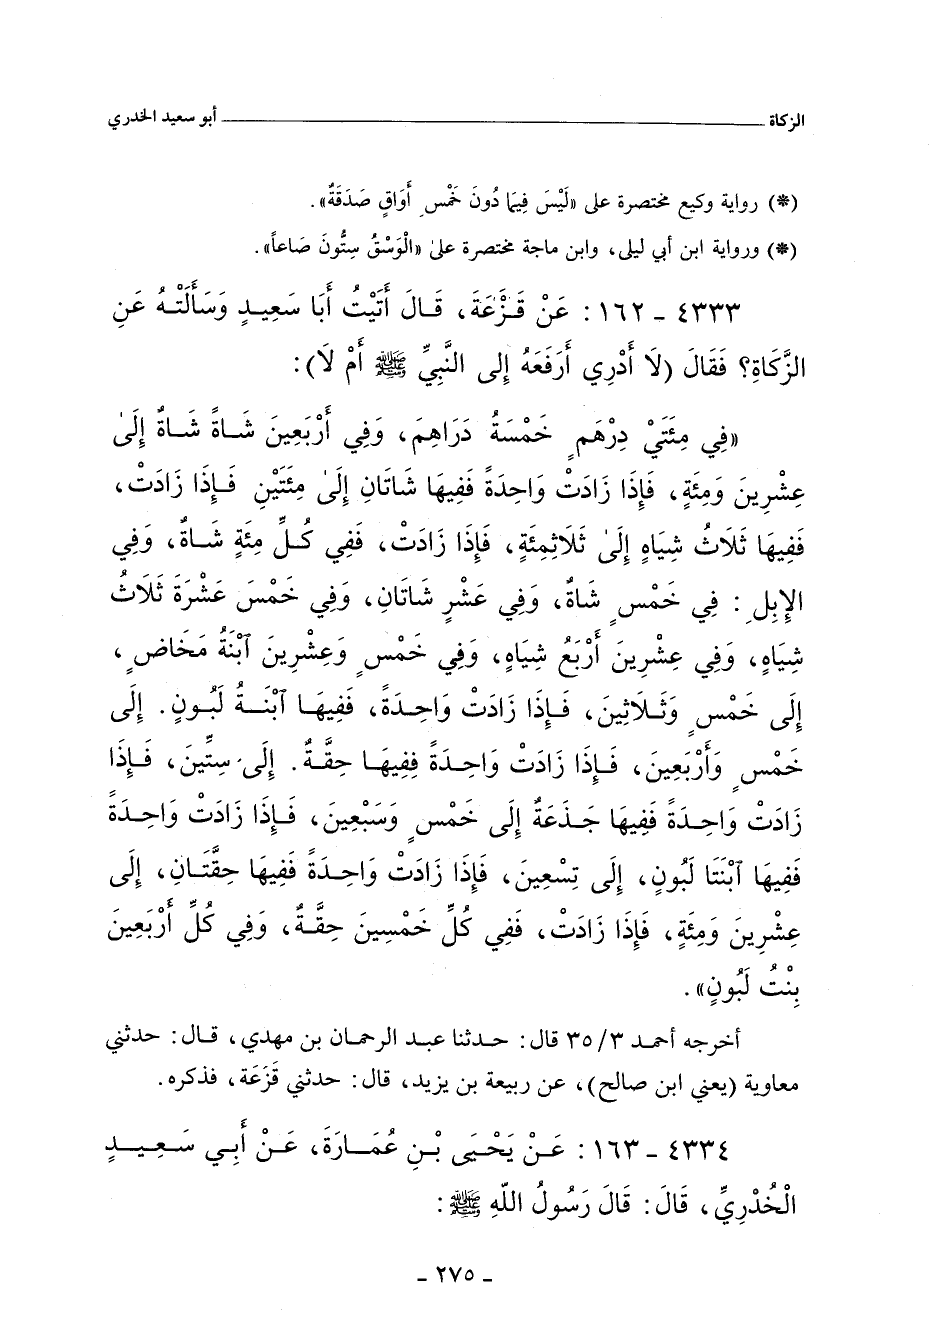 الزكاة ــــــــــــــــــــ أبو سعيد الخدري
(*) رواية وكيع مختصرة على «لَيْسَ فِيمَا دُونَ خَمْسِ أَوَاقٍ صَدَقَةٌ».
(*) ورواية ابن أبي ليلى، وابن ماجة مختصرة على «الْوَسْقُ سِتُّونَ صَاعاً».
٤٣٣٣ - ١٦٢ : عَنْ قَزَعَةَ، قَالَ أَتَيْتُ أَبَا سَعِيدٍ وَسَأَلْتُهُ عَنِ
الزَّكَاةِ؟ فَقَالَ (لَا أَدْرِي أَرَفَعَهُ إِلى النَّبِيِّ ﷺ أَمْ لَا):
«فِي مِئَتَيْ دِرْهَمٍ خَمْسَةُ دَرَاهِمَ، وَفِي أَرْبَعِينَ شَاةً شَاةٌ إِلَىٰ
عِشْرِينَ وَمِئَةٍ، فَإِذَا زَادَتْ وَاحِدَةً فَفِيهَا شَاتَانِ إِلَىٰ مِئَتَيْنِ فَإِذَا زَادَتْ،
فَفِيهَا ثَلَاثُ شِيَاهٍ إِلَىٰ ثَلَاثِمِئَةٍ، فَإِذَا زَادَتْ، فَفِي كُلِّ مِئَةٍ شَاةٌ، وَفِي
الإِبِلِ : فِي خَمْسٍ شَاةٌ، وَفِي عَشْرٍ شَاتَانِ، وَفِي خَمْسَ عَشْرَةَ ثَلَاثُ
شِيَاهٍ، وَفِي عِشْرِينَ أَرْبَعُ شِيَاهٍ، وَفِي خَمْسٍ وَعِشْرِينَ ٱبْنَةُ مَخَاضٍ،
إِلَى خَمْسٍ وَثَلَاثِينَ، فَإِذَا زَادَتْ وَاحِدَةً، فَفِيهَا ٱبْنَةُ لَبُونٍ. إِلَى
خَمْسٍ وَأَرْبَعِينَ، فَإِذَا زَادَتْ وَاحِدَةً فَفِيهَا حِقَّةٌ. إِلَى سِتِّينَ، فَإِذَا
زَادَتْ وَاحِدَةً فَفِيهَا جَذَعَةٌ إِلَى خَمْسٍ وَسَبْعِينَ، فَإِذَا زَادَتْ وَاحِدَةً
فَفِيهَا ٱبْنَتَا لَبُونٍ، إِلَى تِسْعِينَ، فَإِذَا زَادَتْ وَاحِدَةً فَفِيهَا حِقَّتَانِ، إِلَى
عِشْرِينَ وَمِئَةٍ، فَإِذَا زَادَتْ، فَفِي كُلِّ خَمْسِينَ حِقَّةٌ، وَفِي كُلِّ أَرْبَعِينَ
بِنْتُ لَبُونٍ».
أخرجه أحمد ٣/ ٣٥ قال: حدثنا عبد الرحمان بن مهدي، قال: حدثني
معاوية (يعني ابن صالح)، عن ربيعة بن يزيد، قال: حدثني قَزَعَة، فذكره.
٤٣٣٤ - ١٦٣ : عَنْ يَحْيَى بْنِ عُمَارَةَ، عَنْ أَبِي سَعِيدٍ
الْخُدْرِيِّ، قَالَ: قَالَ رَسُولُ اللَّهِ ﷺ:
- ٢٧٥ -